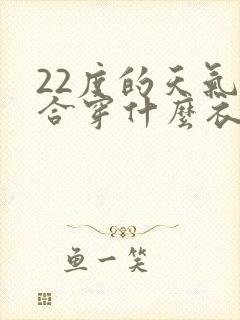 22度的天氣
合穿什麼衣
鱼一笑